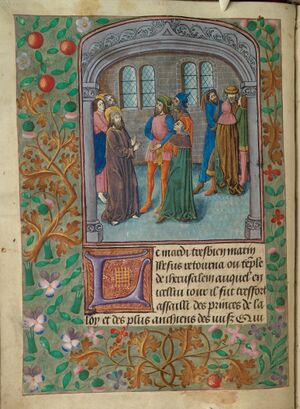 Le mardi tresbien matin
Jhesus retourna ou temple
de iherusalem auquel en
cellui iour il fut tresfort
assailli des princes de la
loy et des plus anchiens des iuifz Qui